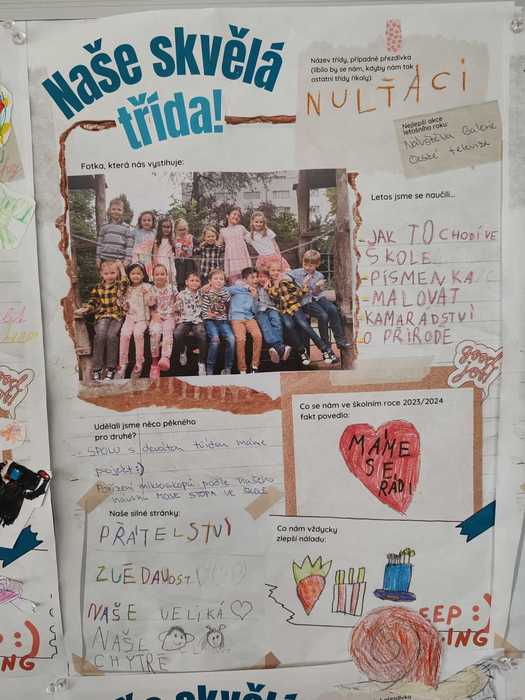 Naše skvělá
třída!
Název třídy, případně přezdívka
(líbilo by se nám, kdyby nám tak
ostatní třídy říkaly):
NULŤÁCI
Nejlepší akce
letošního roku:
Návštěva Galerie
České televize
Fotka, která nás vystihuje:
Letos jsme se naučili...
-JAK TO CHODÍ VE
ŠKOLE
-PÍSMENKA
-MALOVAT
-KAMARÁDSTVÍ
O PŘÍRODĚ
good
job!
Udělali jsme něco pěkného
pro druhé?
- SPOLU s devátou třídou máme
projekt :)
Pořízení mikroskopů podle našeho
návrhu
VE ŠKOLE
Co se nám ve školním roce 2023/2024
fakt povedlo:
MÁME
SE
RÁDI
Naše silné stránky:
PŘÁTELSTVÍ
ZVĚDAVOST
NAŠE VELIKÁ
NAŠE
CHYTRÉ
Co nám vždycky
zlepší náladu:
:)
NG